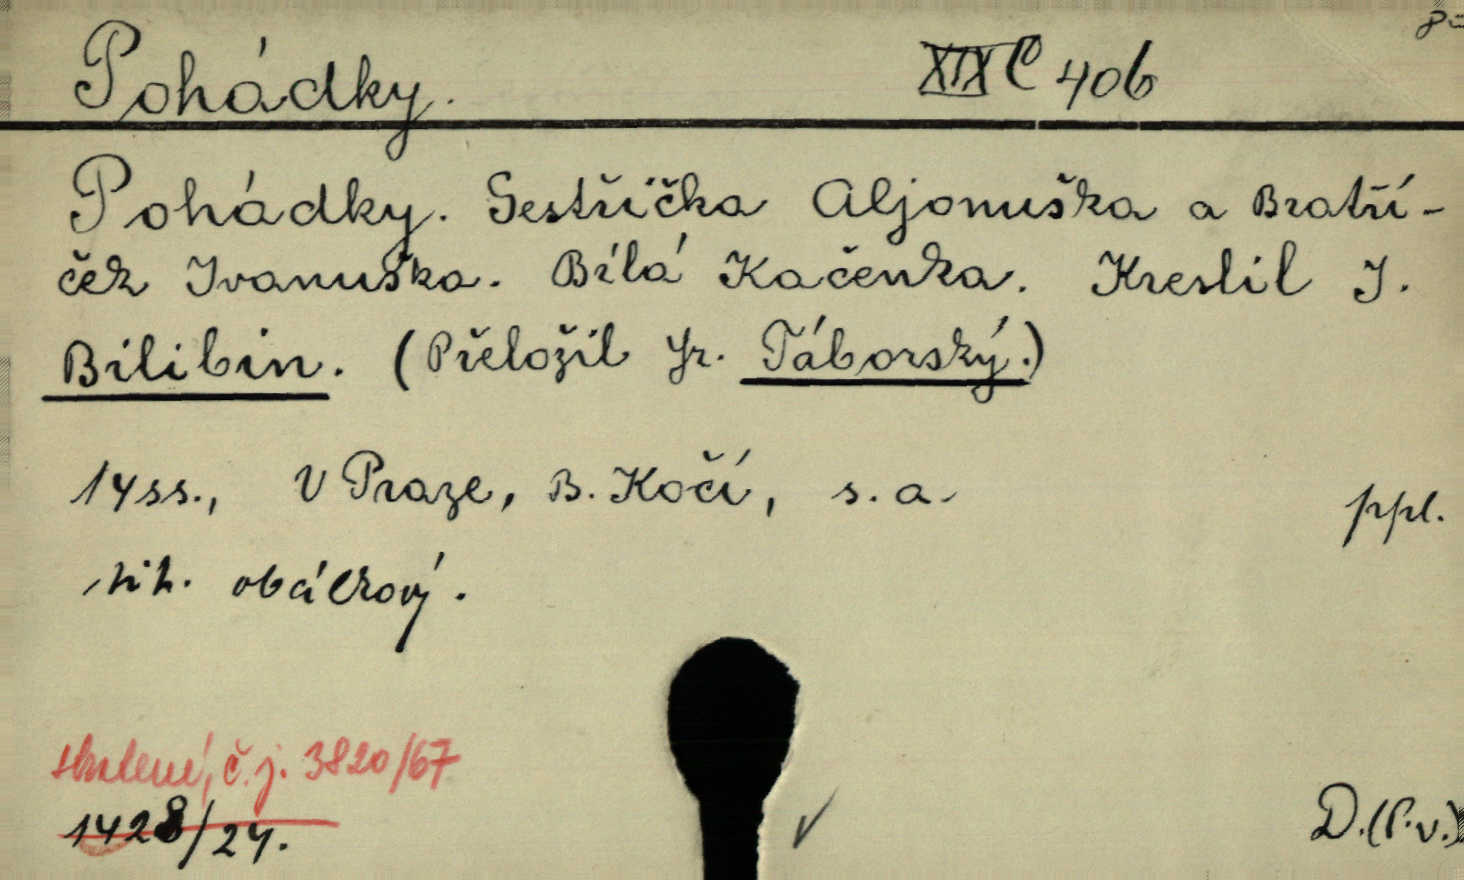 Pohádky. XIX C 406
Pohádky. Sestřička Aljonuška a Bratří-
ček Ivanuška. Bílá Kačenka. Kreslil I.
Bilibin. (Přeložil Fr. Táborský.)
14 ss., V Praze, B. Kočí, s. a.
ppl.
tit. obálkový.
č. j. 3820/67
1428/24.
D. (P. v.)